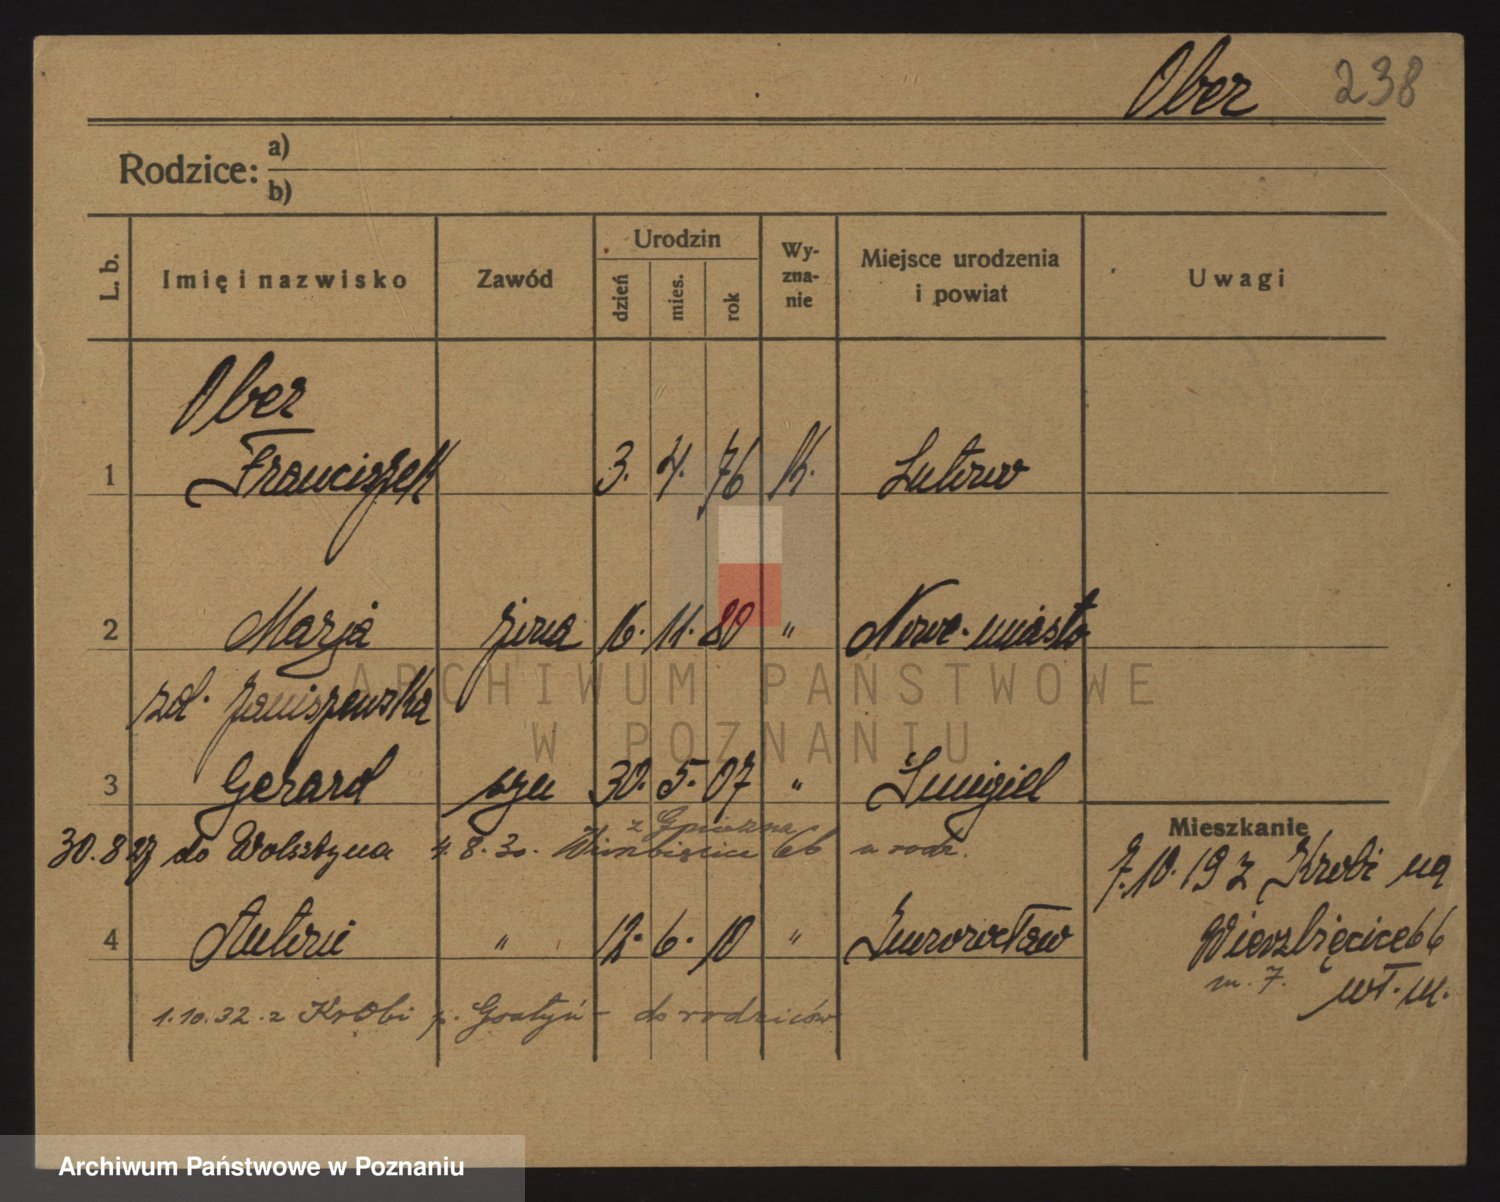 Ober 238
Rodzice: a)
b)
L. b. Imię i nazwisko Zawód Urodzin dzień mies. rok Wy-zna-nie Miejsce urodzenia i powiat Uwagi
Ober
1 Franciszek 3. 4. 76 k. Lutowo
2 Marja żona 16. 11. 80 " Nowe-miasto
zd. Janiszewska
ARCHIWUM PAŃSTWOWE
W POZNANIU
3 Gerard syn 30. 5. 07 " Śmigiel
Mieszkanie
z Gniezna
30.8 27 do Wolsztyna 4. 8. 30. Wierzbięcice 66 u rodz.
7.10.19 z Krobi na
4 Antoni " 12. 6. 10 " Inowrocław
Wierzbięcice 66
m. 7.
wł. m.
1.10.32. z Krobi p. Gostyń - do rodziców
Archiwum Państwowe w Poznaniu